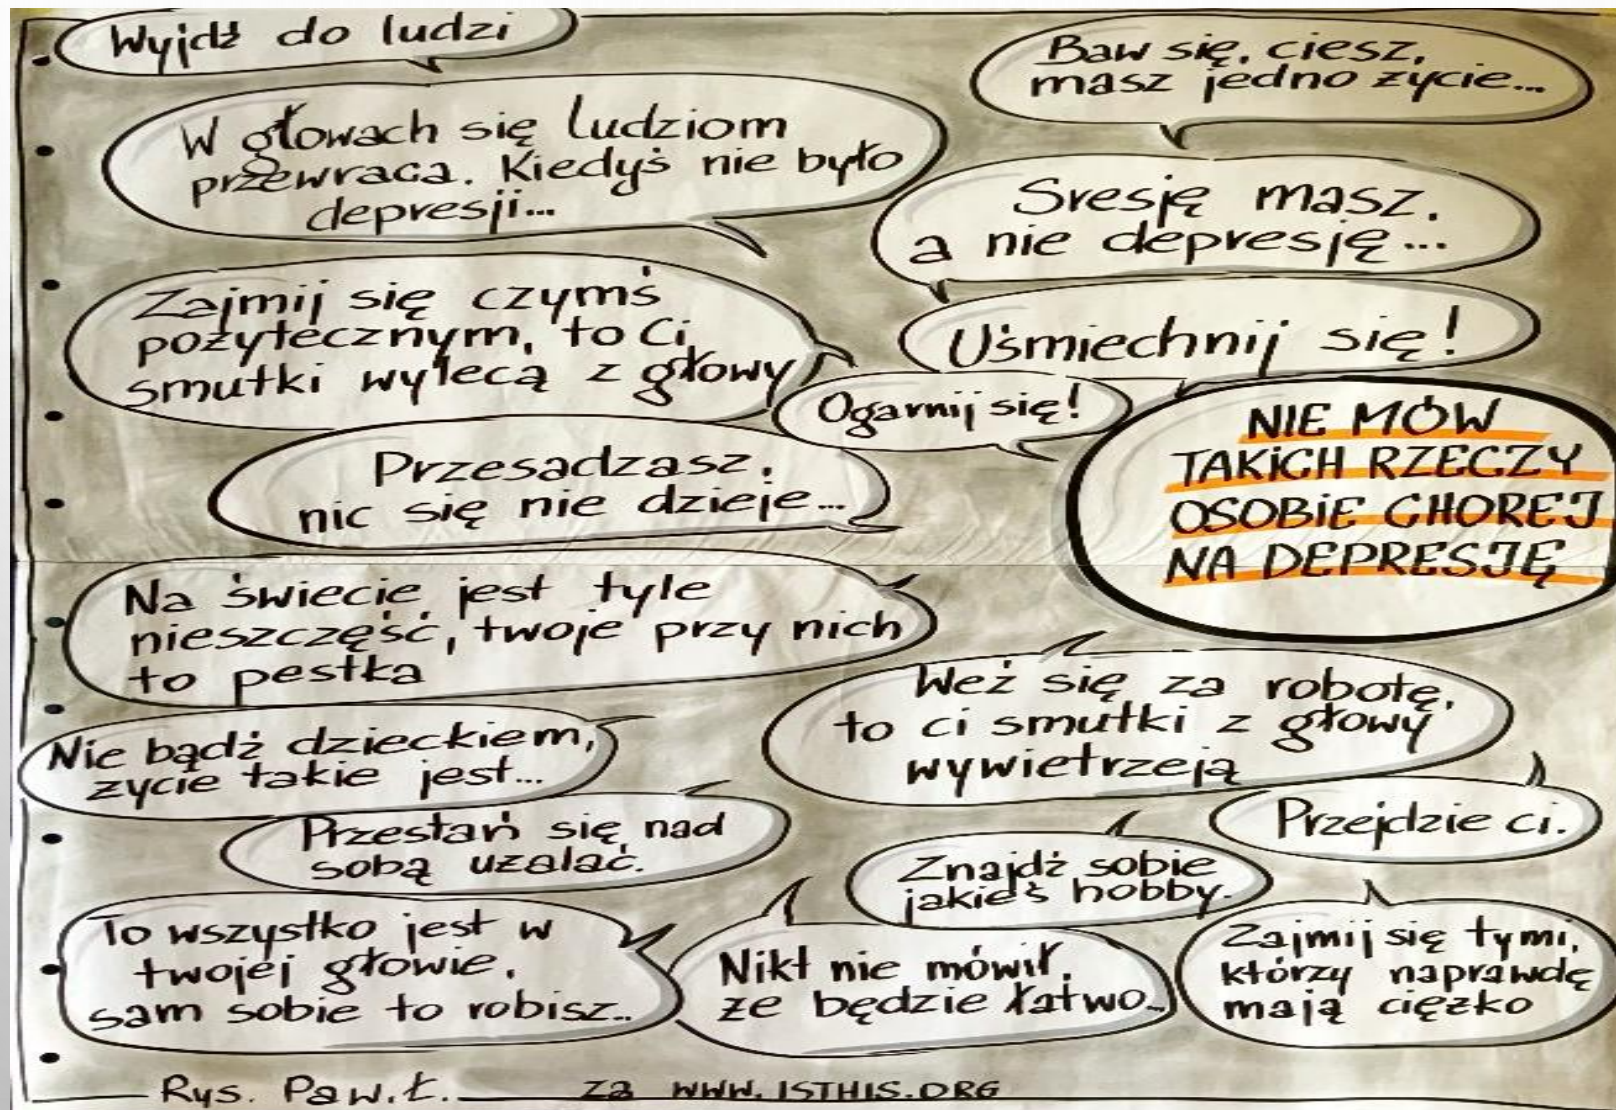 Wyjdź do ludzi
Baw się, ciesz,
masz jedno życie...
W głowach się ludziom
przewraca. Kiedyś nie było
depresji...
Sresję masz,
a nie depresję...
Zajmij się czymś
pożytecznym, to Ci
smutki wylecą z głowy
Uśmiechnij się!
Ogarnij się!
NIE MÓW
TAKICH RZECZY
OSOBIE CHOREJ
NA DEPRESJĘ
Przesadzasz,
nic się nie dzieje...
Na świecie jest tyle
nieszczęść, twoje przy nich
to pestka
Weź się za robotę,
to ci smutki z głowy
wywietrzeją
Nie bądź dzieckiem,
życie takie jest...
Przejdzie ci.
Przestań się nad
sobą użalać.
Znajdź sobie
jakieś hobby.
To wszystko jest w
twojej głowie,
sam sobie to robisz..
Nikt nie mówił,
że będzie łatwo..
Zajmij się tymi,
którzy naprawdę
mają ciężko
Rys. Paw.Ł. za WWW.ISTHIS.ORG